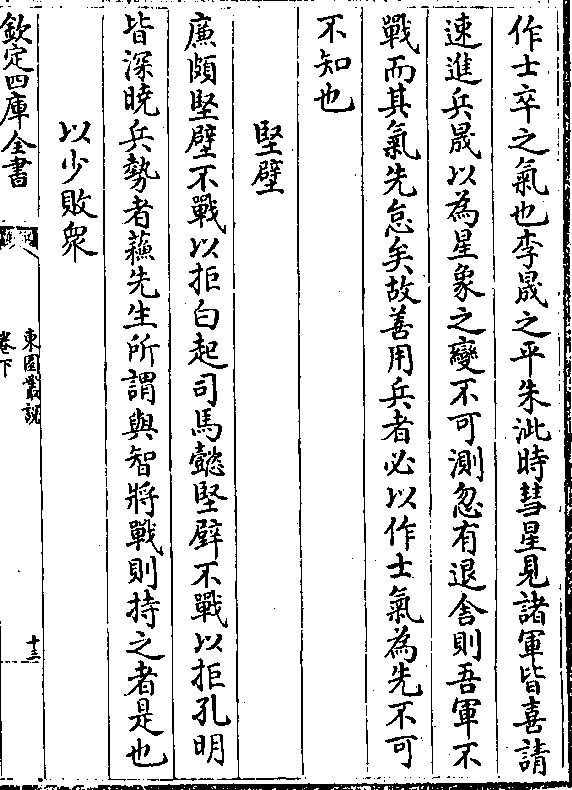 作士卒之氣也李晟之平朱泚時彗星見諸軍皆喜請
速進兵晟以為星象之變不可測忽有退舍則吾軍不
戰而其氣先怠矣故善用兵者必以作士氣為先不可
不知也
堅壁
廉頗堅壁不戰以拒白起司馬懿堅壁不戰以拒孔明
皆深曉兵勢者蘓先生所謂與智將戰則持之者是也
以少敗衆
欽定四庫全書
東園叢說
卷下
十三